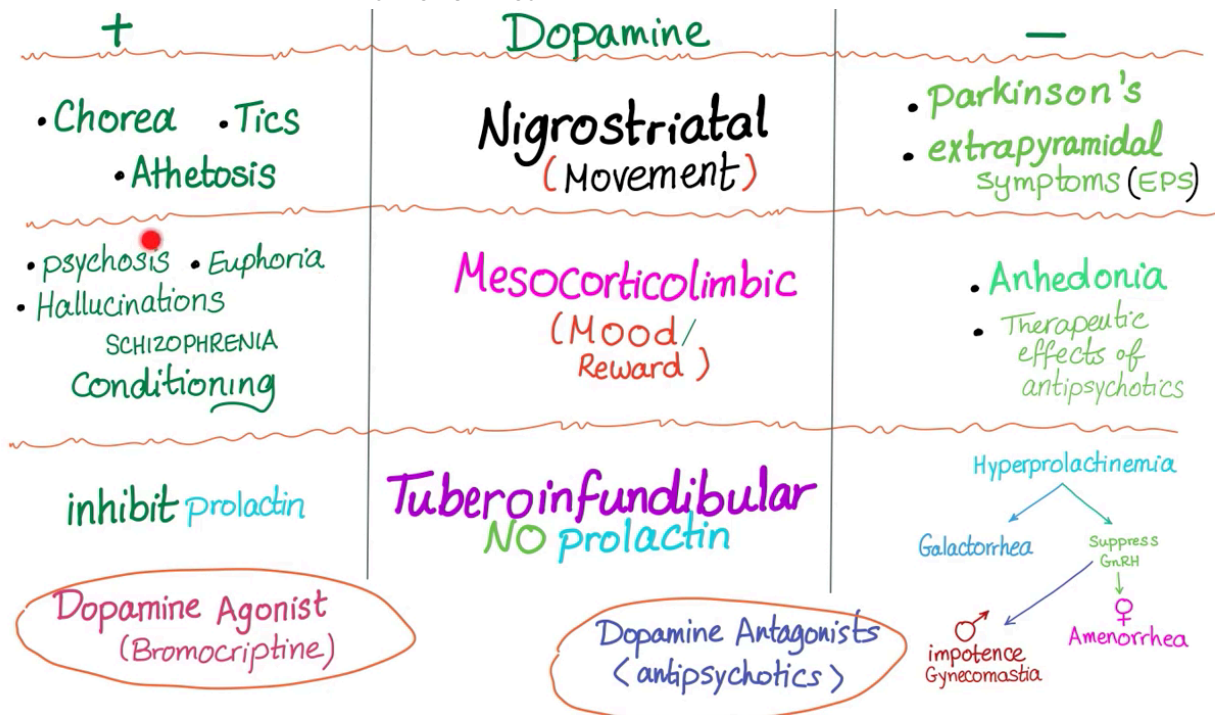 +
Dopamine
−
• Chorea • Tics
• Athetosis
Nigrostriatal
(Movement)
• Parkinson's
• extrapyramidal
symptoms (EPS)
• psychosis • Euphoria
• Hallucinations
SCHIZOPHRENIA
Conditioning
Mesocorticolimbic
(Mood/
Reward)
• Anhedonia
• Therapeutic
effects of
antipsychotics
inhibit prolactin
Tuberoinfundibular
NO prolactin
Hyperprolactinemia
Galactorrhea
Suppress
GnRH
♂
impotence
Gynecomastia
♀
Amenorrhea
Dopamine Agonist
(Bromocriptine)
Dopamine Antagonists
<antipsychotics>